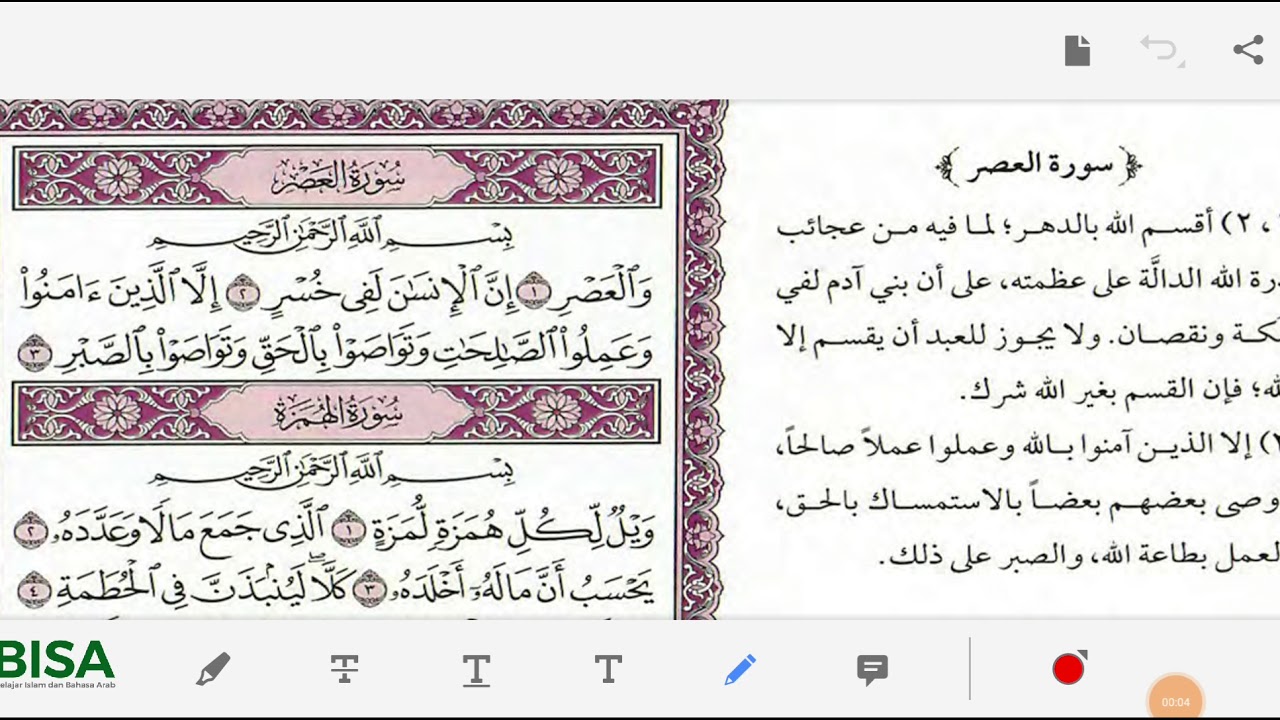 سُورَةُ العَصْرِ
بِسْمِ ٱللَّهِ ٱلرَّحْمَٰنِ ٱلرَّحِيمِ
وَٱلْعَصْرِ ١ إِنَّ ٱلْإِنسَٰنَ لَفِى خُسْرٍ ٢ إِلَّا ٱلَّذِينَ ءَامَنُوا۟
وَعَمِلُوا۟ ٱلصَّٰلِحَٰتِ وَتَوَاصَوْا۟ بِٱلْحَقِّ وَتَوَاصَوْا۟ بِٱلصَّبْرِ ٣
سُورَةُ الهُمَزَةِ
بِسْمِ ٱللَّهِ ٱلرَّحْمَٰنِ ٱلرَّحِيمِ
وَيْلٌ لِّكُلِّ هُمَزَةٍ لُّمَزَةٍ ١ ٱلَّذِى جَمَعَ مَالًا وَعَدَّدَهُۥ ٢
يَحْسَبُ أَنَّ مَالَهُۥٓ أَخْلَدَهُۥ ٣ كَلَّا ۖ لَيُنۢبَذَنَّ فِى ٱلْحُطَمَةِ ٤
سورة العصر
، ٢) أقسم الله بالدهر؛ لما فيه من عجائب
درة الله الدالَّة على عظمته، على أن بني آدم لفي
لكة ونقصان. ولا يجوز للعبد أن يقسم إلا
لله؛ فإن القسم بغير الله شرك.
) إلا الذين آمنوا بالله وعملوا عملاً صالحاً،
وصى بعضهم بعضاً بالاستمساك بالحق،
لعمل بطاعة الله، والصبر على ذلك.
BISA
elajar Islam dan Bahasa Arab
T T T
00:04